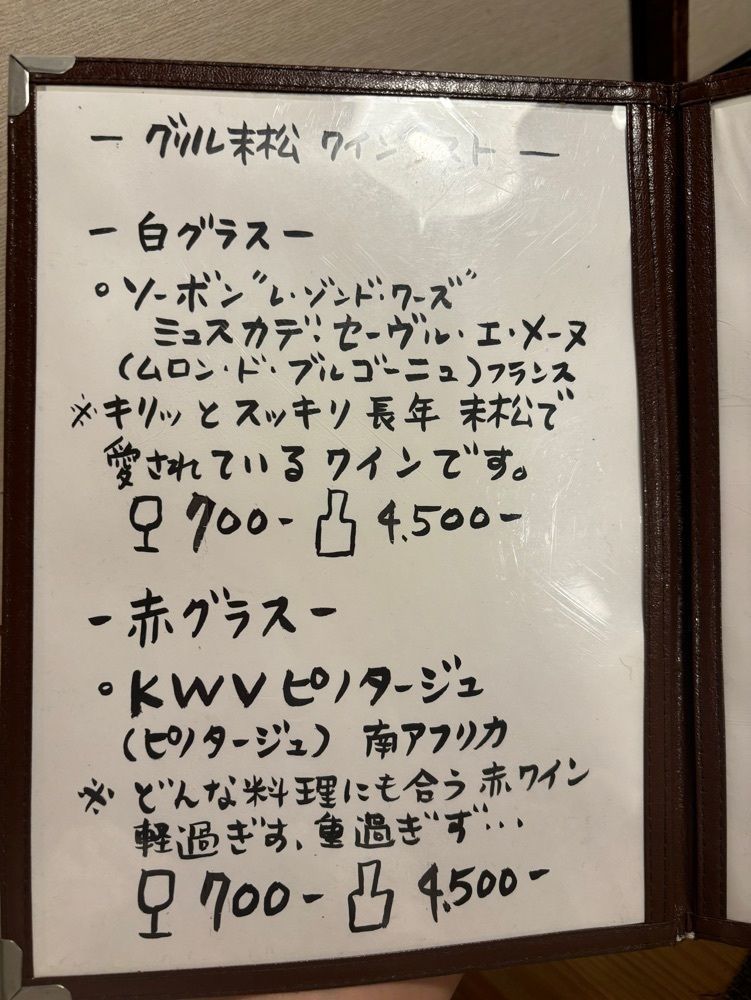 ー グリル末松 ワインリスト ー
ー 白グラス ー
。ソーボン"レ・ゾンド・ワーズ"
ミュスカデ:セーヴル・エ・メーヌ
(ムロン・ド・ブルゴーニュ)フランス
※キリッとスッキリ長年 末松で
愛されているワインです。
700- 4,500-
ー 赤グラス ー
。KWVピノタージュ
(ピノタージュ) 南アフリカ
※どんな料理にも合う赤ワイン
軽過ぎす、重過ぎず...
700- 4,500-